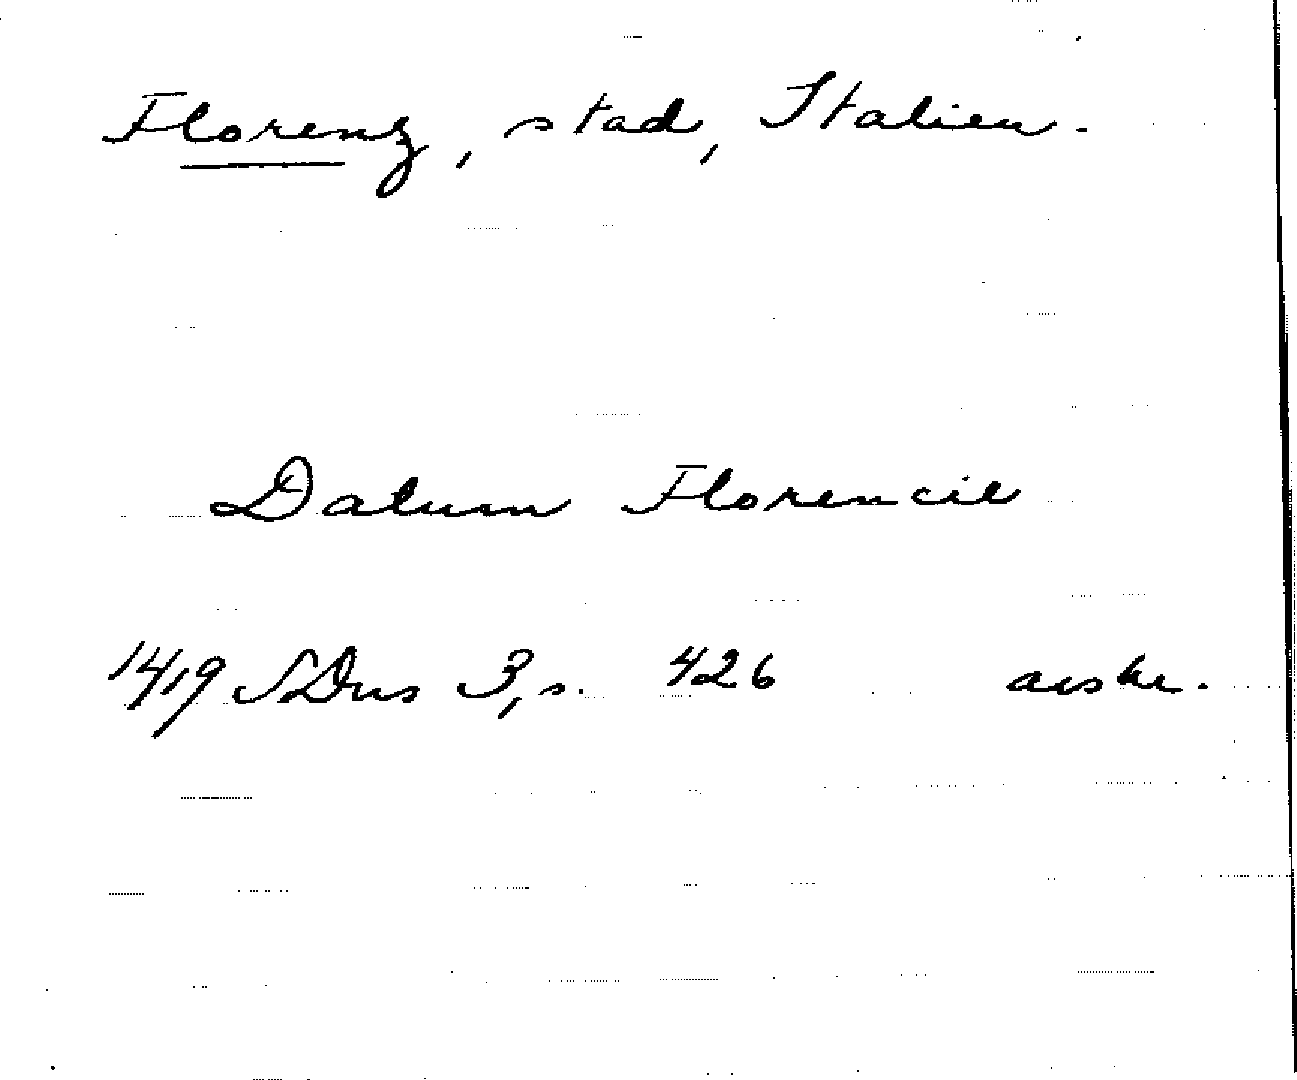 Florenz, stad, Italien.
Datum Florencie
1419 SDns 3, s. 426 avskr.